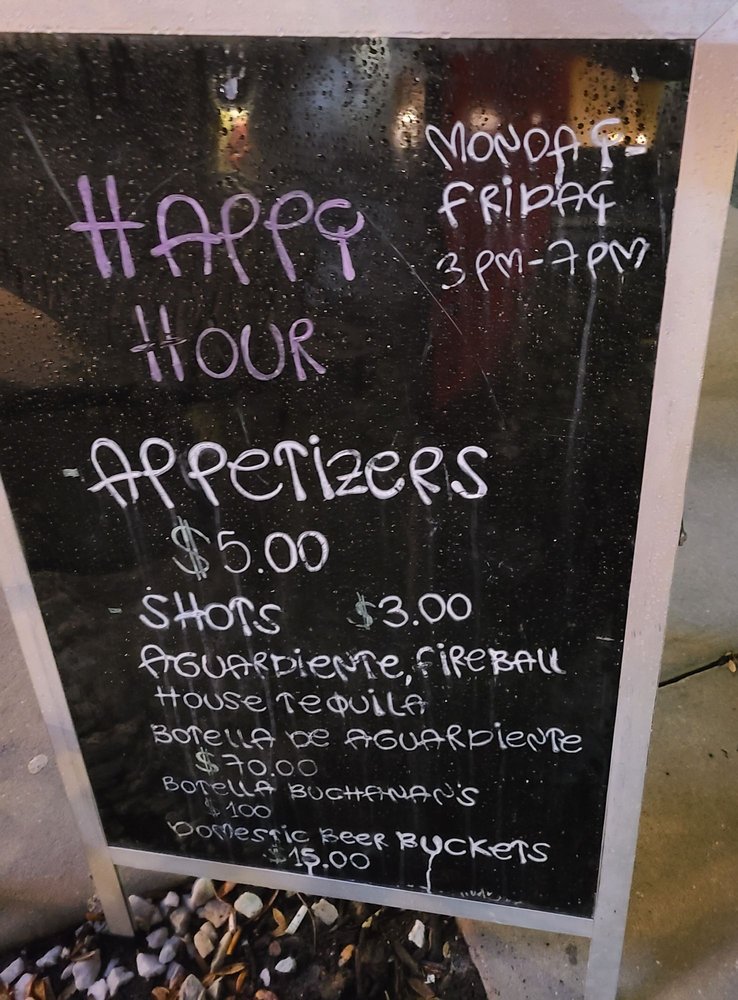 HAPPY
HOUR
MONDAY-
FRIDAY
3PM-7PM
-APPETIZERS
$5.00
-SHOTS $3.00
AGUARDIENTE, FIREBALL
HOUSE TEQUILA
BOTELLA DE AGUARDIENTE
$70.00
BOTELLA BUCHANAN'S
$100
DOMESTIC BEER BUCKETS
$15.00